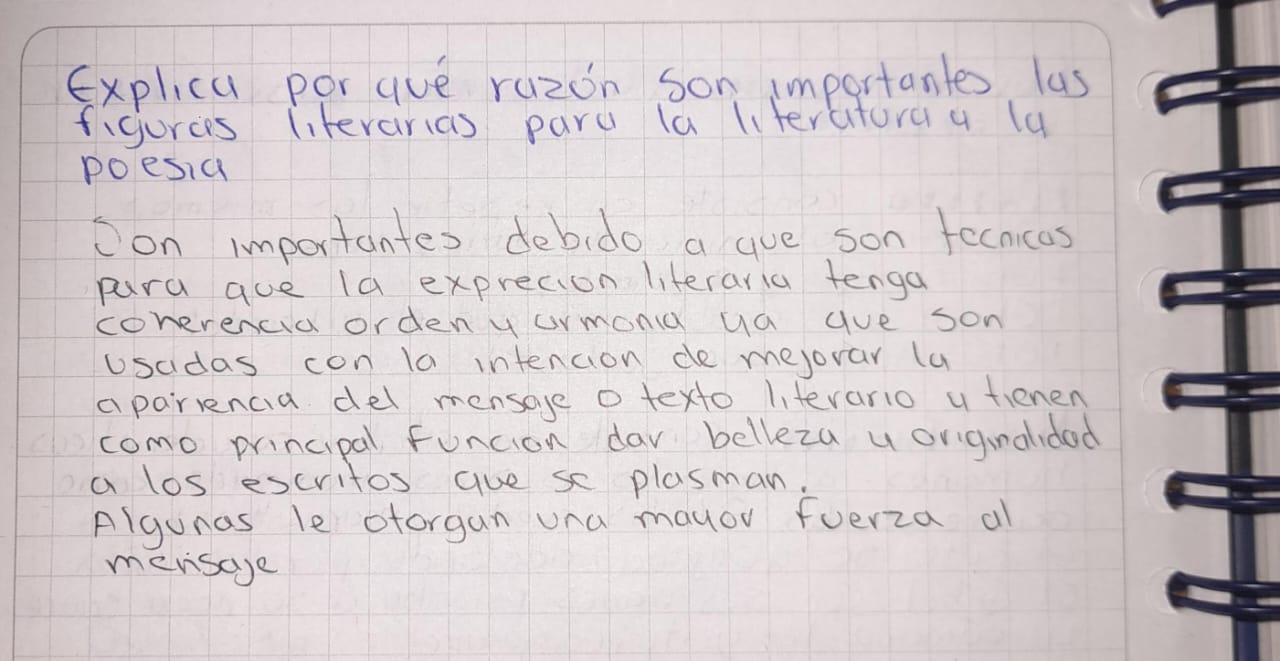 Explica por qué razón son importantes las
figuras literarias para la literatura y la
poesia
Son importantes debido a que son tecnicas
para que la exprecion literaria tenga
coherencia orden y armonia ya que son
usadas con la intencion de mejorar la
apariencia del mensaje o texto literario y tienen
como principal funcion dar belleza y originalidad
a los escritos que se plasman.
Algunas le otorgan una mayor fuerza al
mensaje